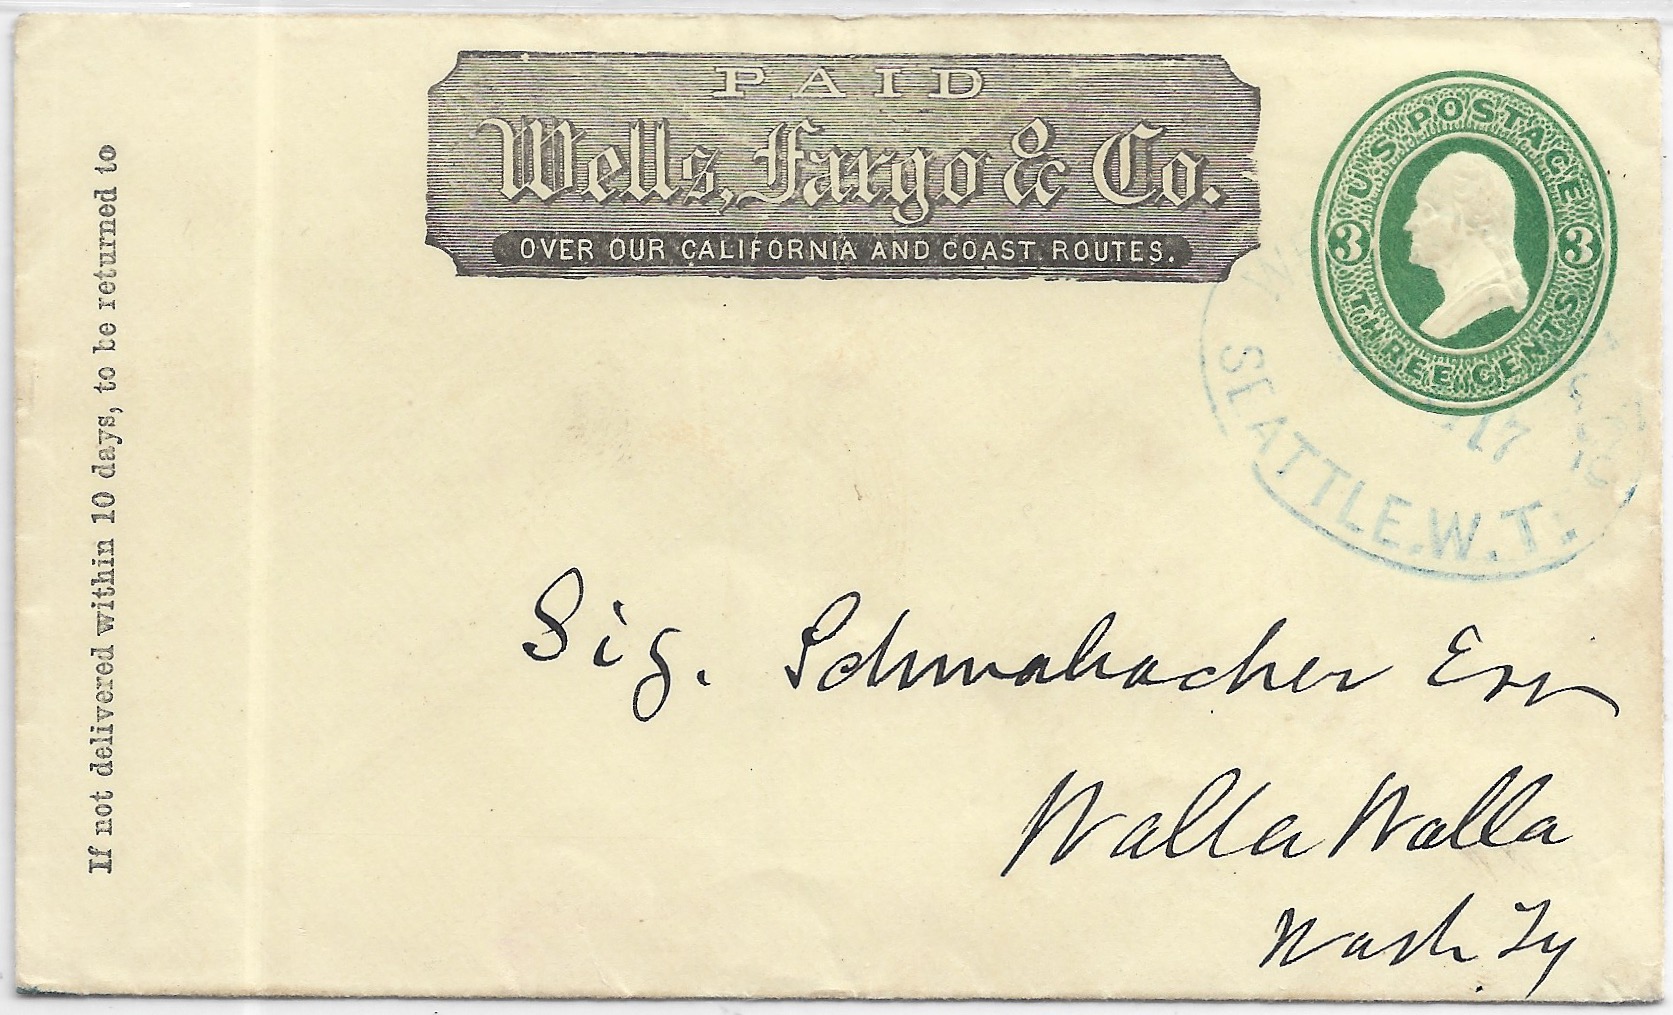 PAID
Wells, Fargo & Co.
OVER OUR CALIFORNIA AND COAST ROUTES.
U.S. POSTAGE
3 3
THREE CENTS
17
SEATTLE.W.T.
If not delivered within 10 days, to be returned to
Sig. Schwabacher Esq
Walla Walla
Wash Ty